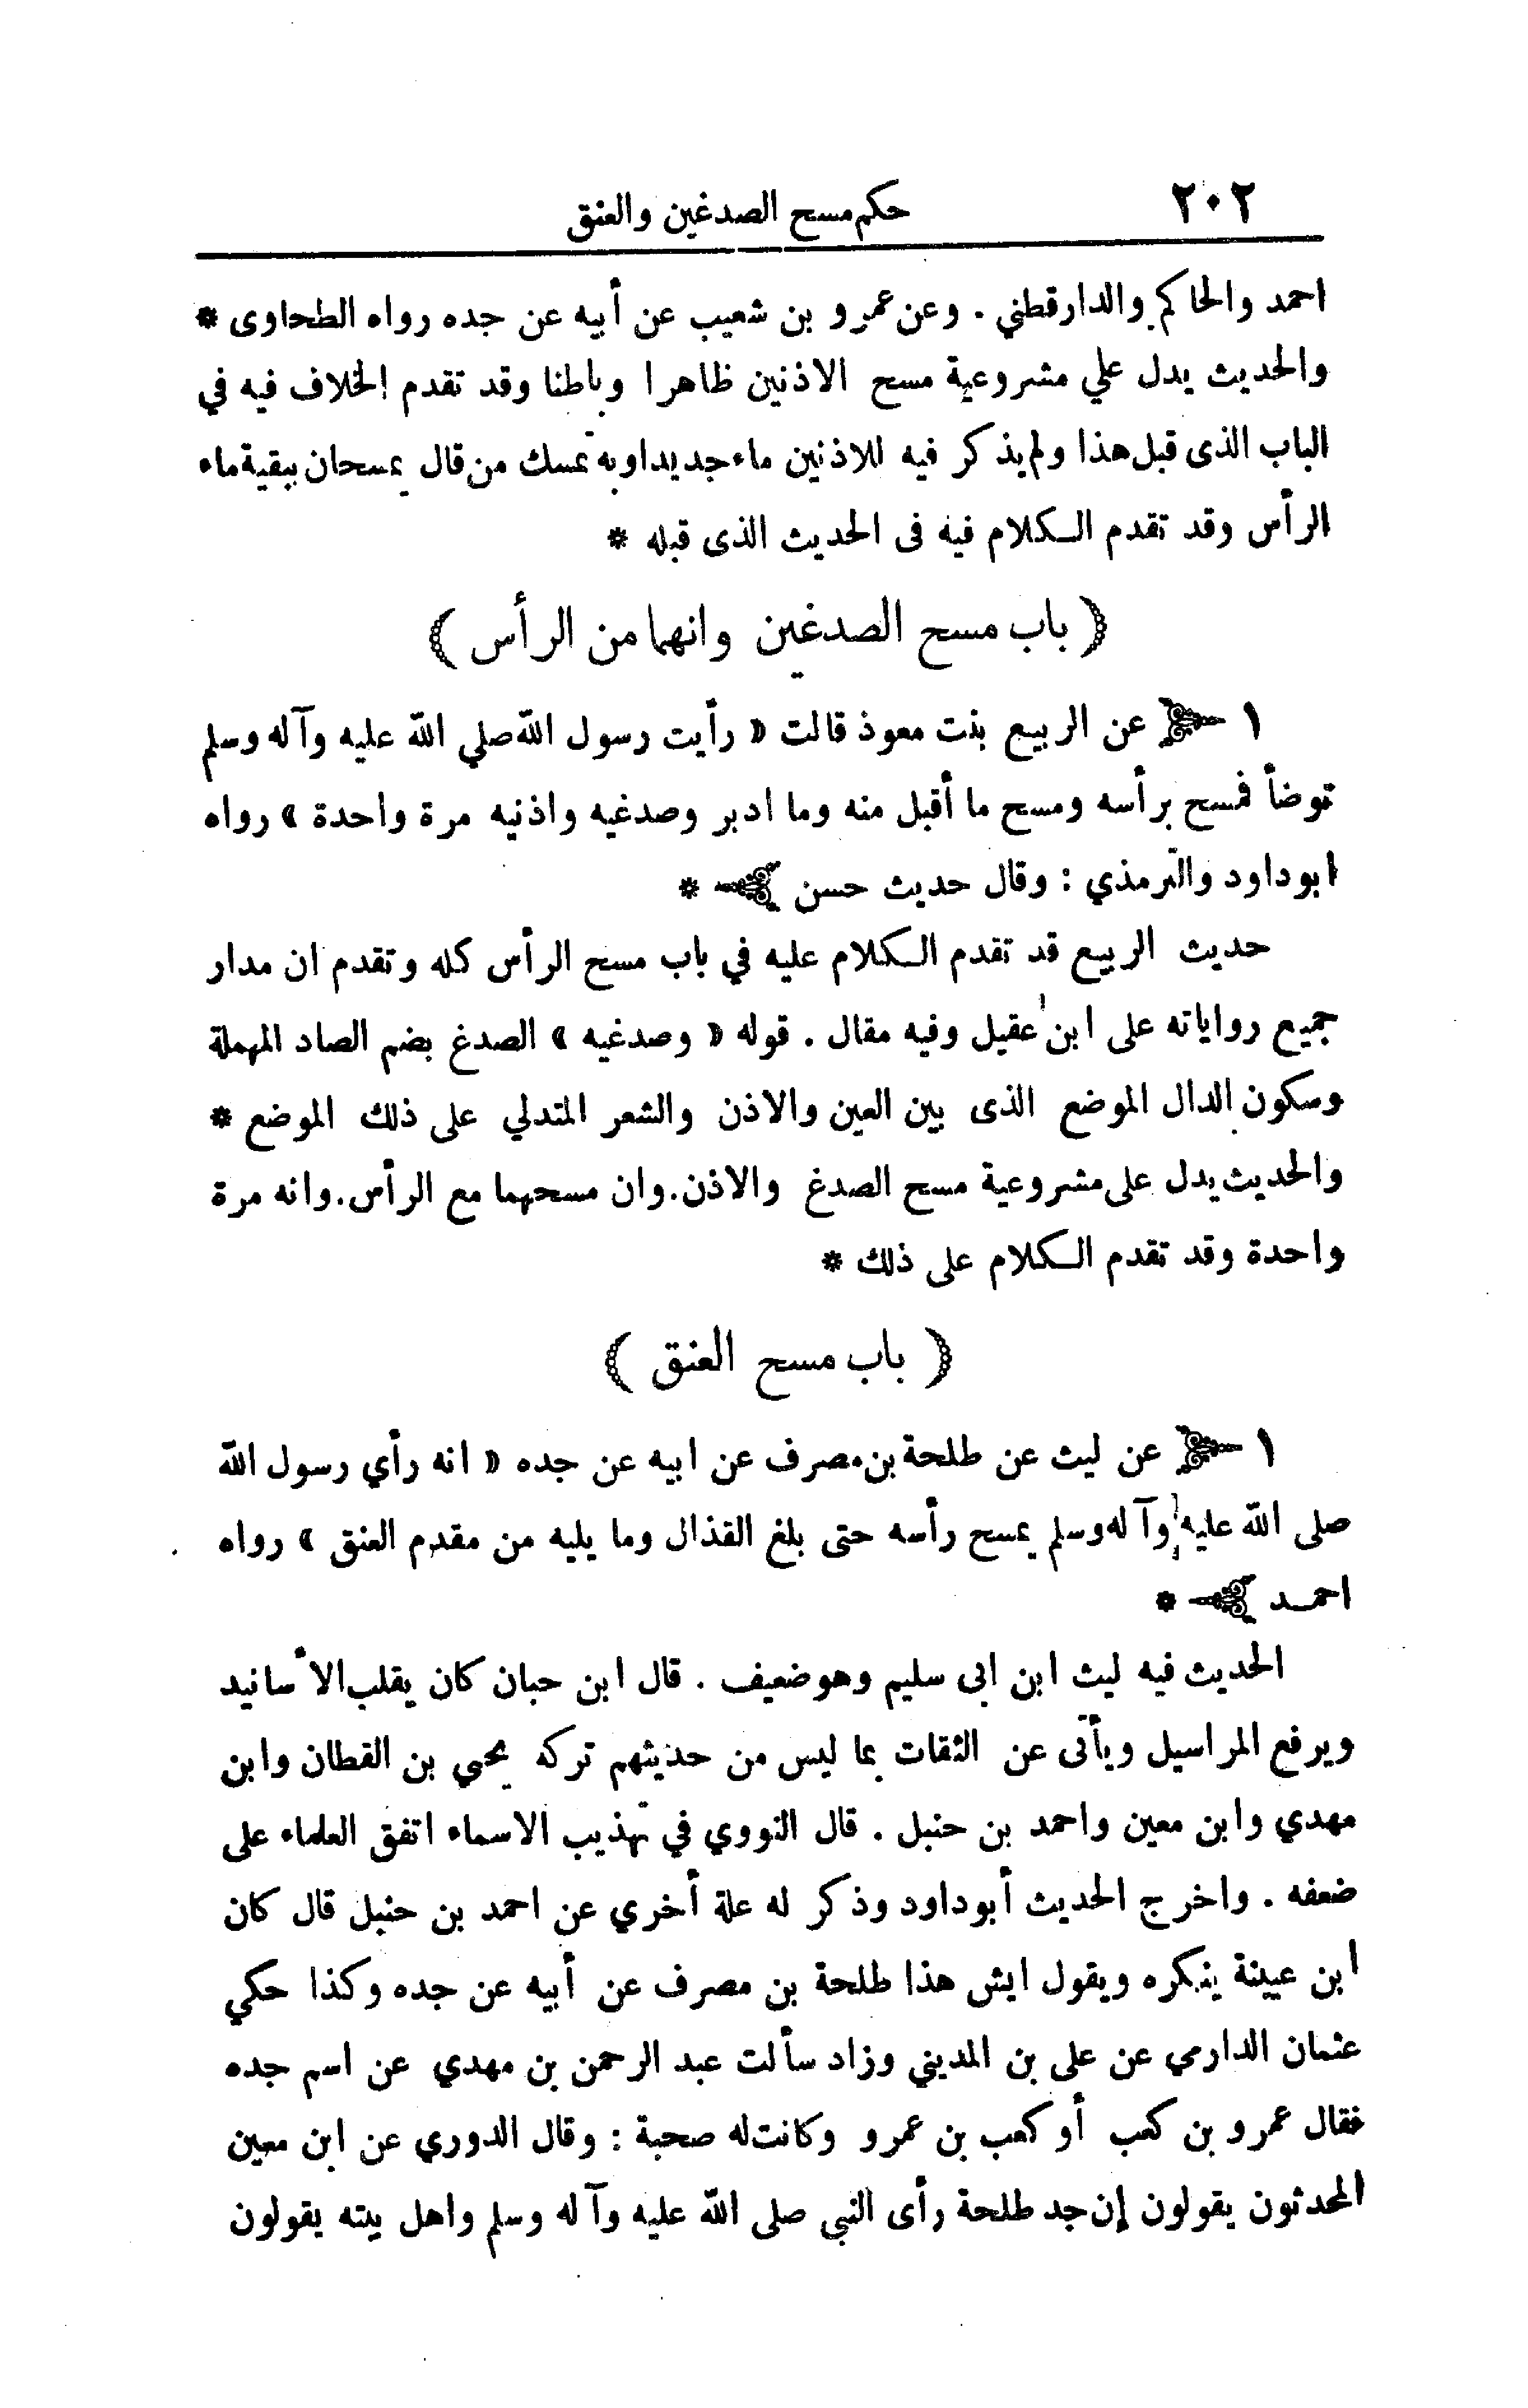 ٢٠٢ حكم مسح الصدغين والعنق
احمد والحاكم والدارقطني . وعن عمرو بن شعيب عن أبيه عن جده رواه الطحاوى *
والحديث يدل علي مشروعية مسح الاذنين ظاهرا وباطنا وقد تقدم الخلاف فيه في
الباب الذى قبل هذا ولم يذكر فيه للاذنين ماء جديدا وبه تمسك من قال يمسحان ببقية ماء
الرأس وقد تقدم الكلام فيه فى الحديث الذى قبله *
( باب مسح الصدغين وانهما من الرأس )
١ عن الربيع بنت معوذ قالت « رأيت رسول الله صلي الله عليه وآله وسلم
توضأ فمسح برأسه ومسح ما أقبل منه وما ادبر وصدغيه واذنيه مرة واحدة » رواه
ابوداود والترمذي : وقال حديث حسن *
حديث الربيع قد تقدم الكلام عليه في باب مسح الرأس كله وتقدم ان مدار
جميع رواياته على ابن عقيل وفيه مقال . قوله « وصدغيه » الصدغ بضم الصاد المهملة
وسكون الدال الموضع الذى بين العين والاذن والشعر المتدلي على ذلك الموضع *
والحديث يدل على مشروعية مسح الصدغ والاذن . وان مسحهما مع الرأس . وانه مرة
واحدة وقد تقدم الكلام على ذلك *
( باب مسح العنق )
١ عن ليث عن طلحة بن مصرف عن ابيه عن جده « انه رأي رسول الله
صلى الله عليه وآله وسلم يمسح رأسه حتى بلغ القذال وما يليه من مقدم العنق » رواه
احمد *
الحديث فيه ليث ابن ابى سليم وهو ضعيف . قال ابن حبان كان يقلب الأسانيد
ويرفع المراسيل ويأتى عن الثقات بما ليس من حديثهم تركه يحيى بن القطان وابن
مهدي وابن معين واحمد بن حنبل . قال النووي في تهذيب الاسماء اتفق العلماء على
ضعفه . واخرج الحديث أبوداود وذكر له علة أخري عن احمد بن حنبل قال كان
ابن عيينة ينكره ويقول ايش هذا طلحة بن مصرف عن أبيه عن جده وكذا حكي
عثمان الدارمي عن على بن المديني وزاد سألت عبد الرحمن بن مهدي عن اسم جده
فقال عمرو بن كعب أو كعب بن عمرو وكانت له صحبة : وقال الدوري عن ابن معين
المحدثون يقولون إن جد طلحة رأى النبى صلى الله عليه وآله وسلم واهل بيته يقولون